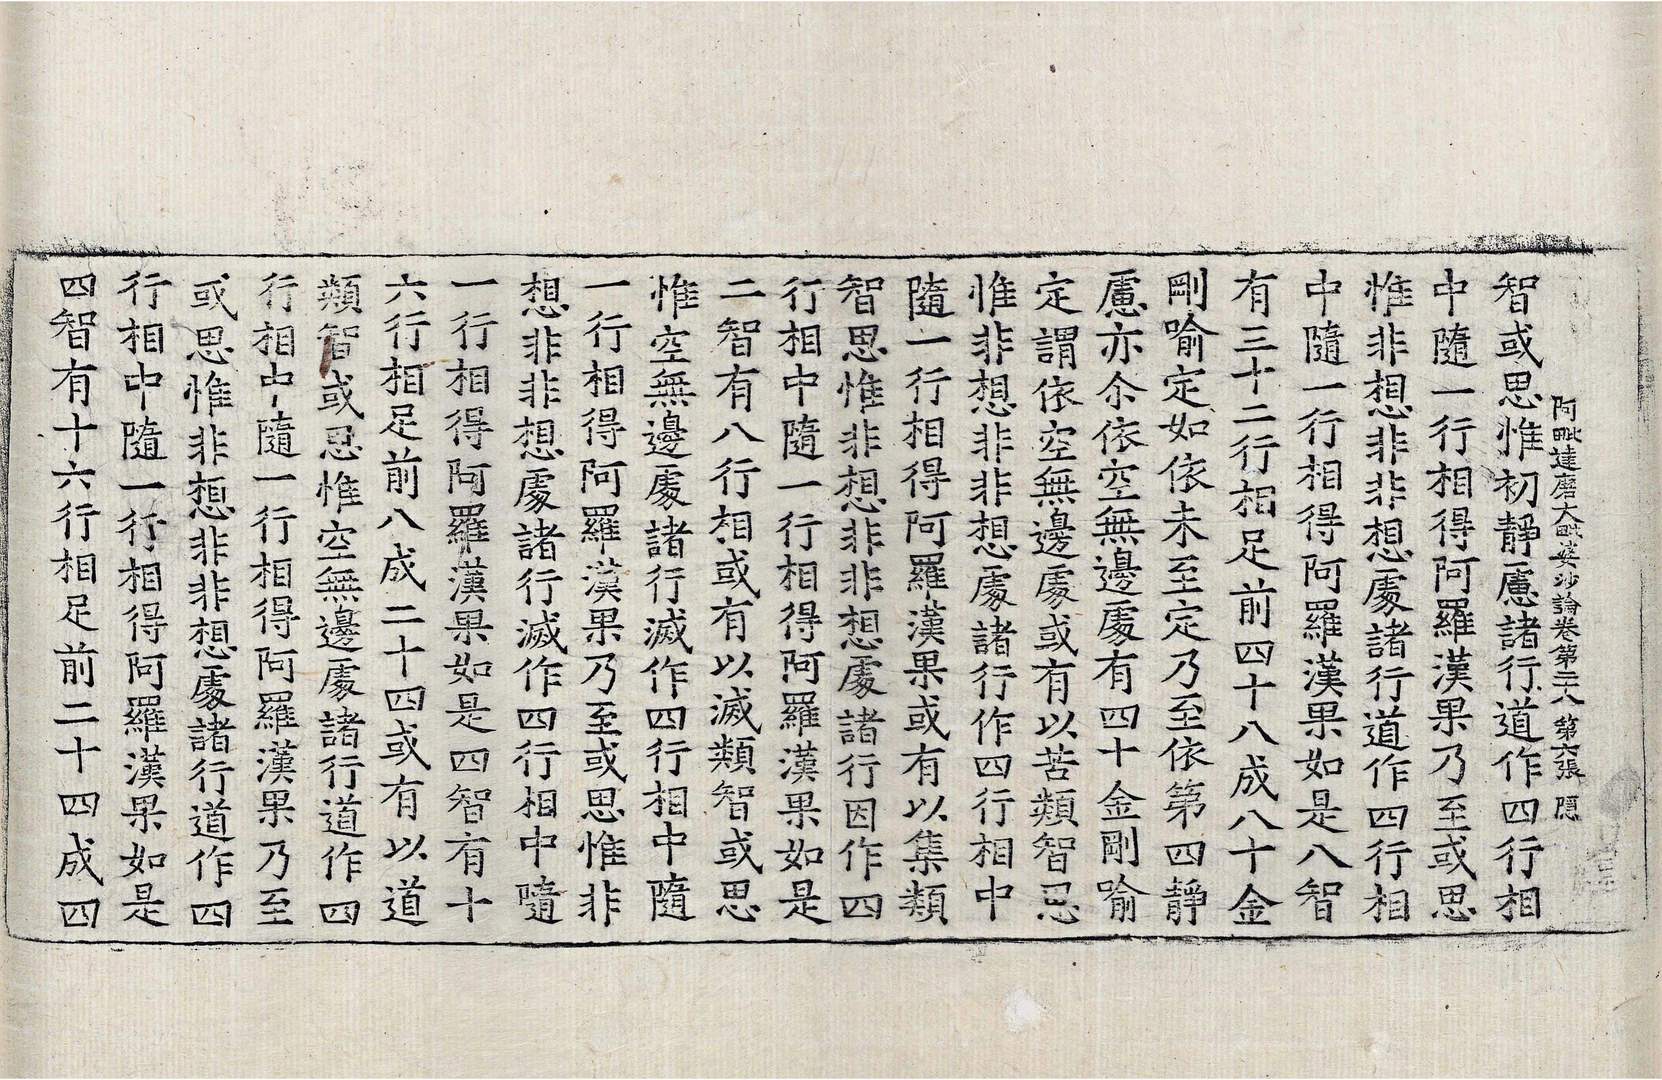 阿毗達磨大毗婆沙論卷第二十八 第六張 隱
智或思惟初靜慮諸行道作四行相
中隨一行相得阿羅漢果乃至或思
惟非想非非想處諸行道作四行相
中隨一行相得阿羅漢果如是八智
有三十二行相足前四十八成八十金
剛喻定如依未至定乃至依第四靜
慮亦尒依空無邊處有四十金剛喻
定謂依空無邊處或有以苦類智思
惟非想非非想處諸行作四行相中
隨一行相得阿羅漢果或有以集類
智思惟非想非非想處諸行因作四
行相中隨一行相得阿羅漢果如是
二智有八行相或有以滅類智或思
惟空無邊處諸行滅作四行相中隨
一行相得阿羅漢果乃至或思惟非
想非非想處諸行滅作四行相中隨
一行相得阿羅漢果如是四智有十
六行相足前八成二十四或有以道
類智或思惟空無邊處諸行道作四
行相中隨一行相得阿羅漢果乃至
或思惟非想非非想處諸行道作四
行相中隨一行相得阿羅漢果如是
四智有十六行相足前二十四成四